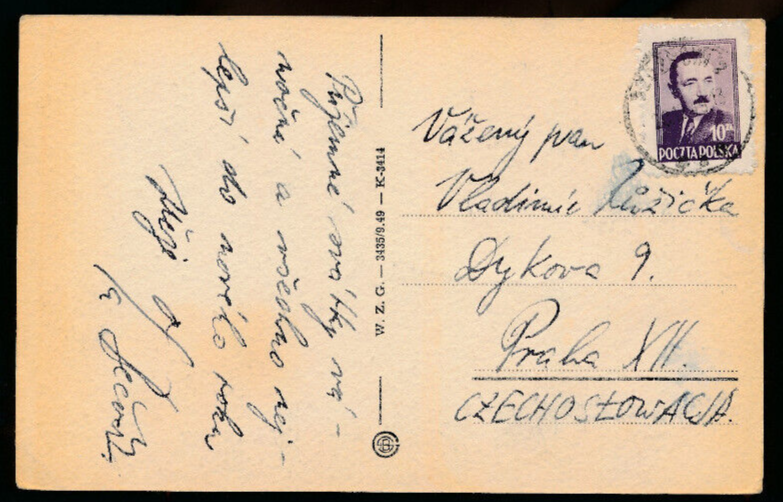 Příjemné svátky vá-
noční a všechno nej-
lepší do nového roku
přeje
W. Z. G. — 3435/9.49 — K-3414
10 ZŁ
POCZTA POLSKA
Vážený pan
Vladimír Růžička
Dykova 9.
Praha XII.
CZECHOSŁOWACJA